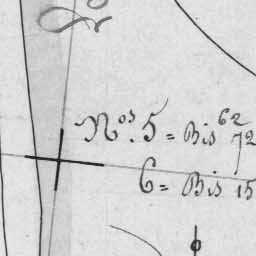 Nos. 5 = Bis 62
72
6 = Bis 15